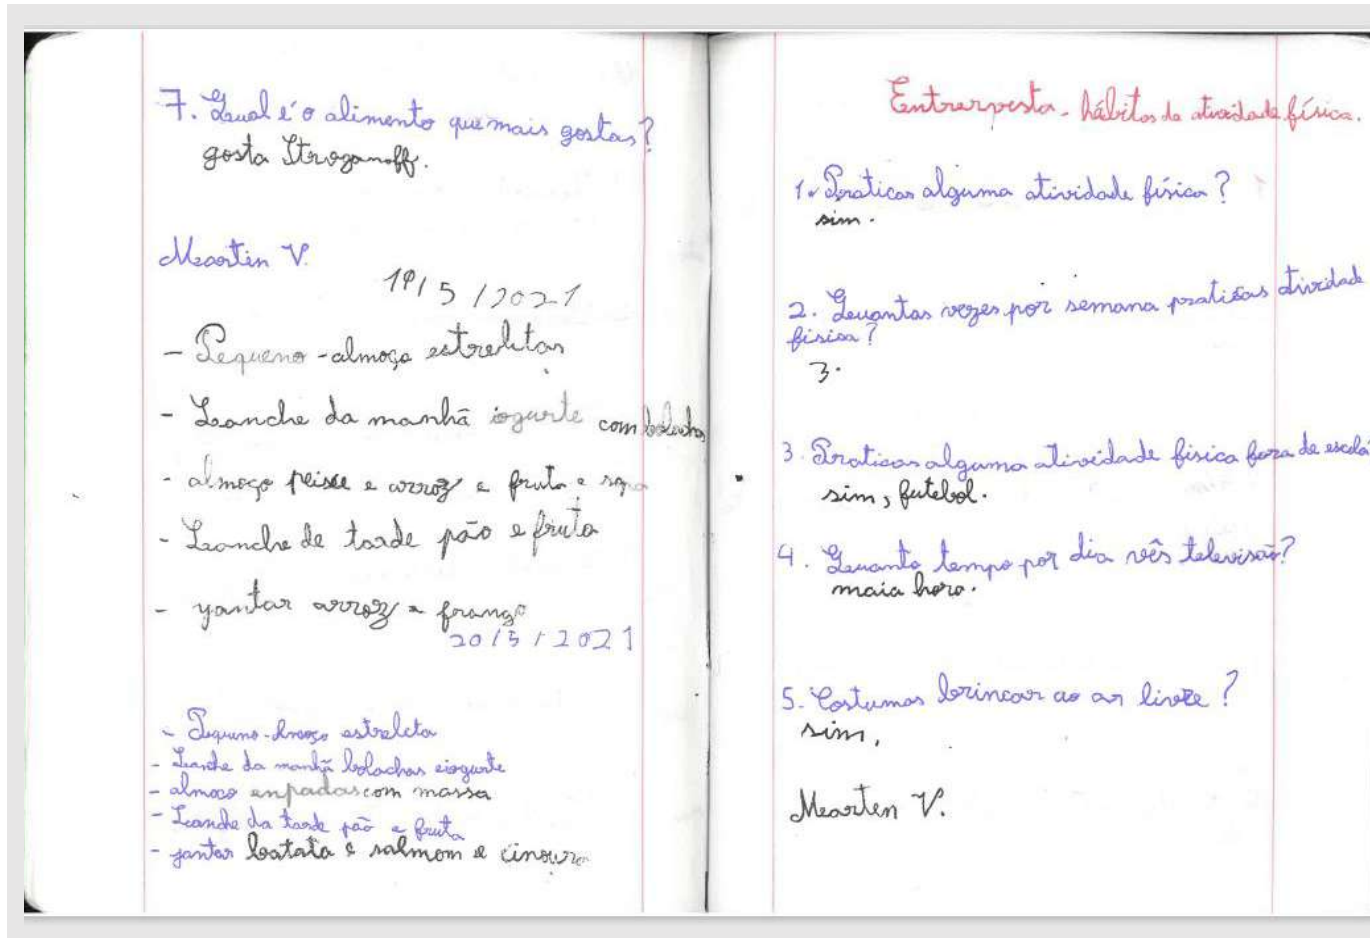 7. Qual é o alimento que mais gostas?
gosta Stroganoff.
Martin V.
19/5/2021
- Pequeno-almoço estrelitas
- Lanche da manhã iogurte com bolachas
- almoço peisce e arroz e fruta e sopa
- Lanche de tarde pão e fruta
- yantar arroz e frango
20/5/2021
- Pequeno-lmoço estreleta
- Lanche da manhã bolachas eiogurte
- almoco enpadas com massa
- Lanche da tarde pão e fruta
- jantar batata e salmom e cinoura
Entrevista - hábitos de atividade física.
1. Praticas alguma atividade física?
sim.
2. Quantas vezes por semana praticas atividade
física?
3.
3. Praticas alguma atividade física fora de escola
sim, futebol.
4. Quanto tempo por dia vês televisão?
maia hora.
5. Costumas brincar ao ar livre?
sim,
Marten V.